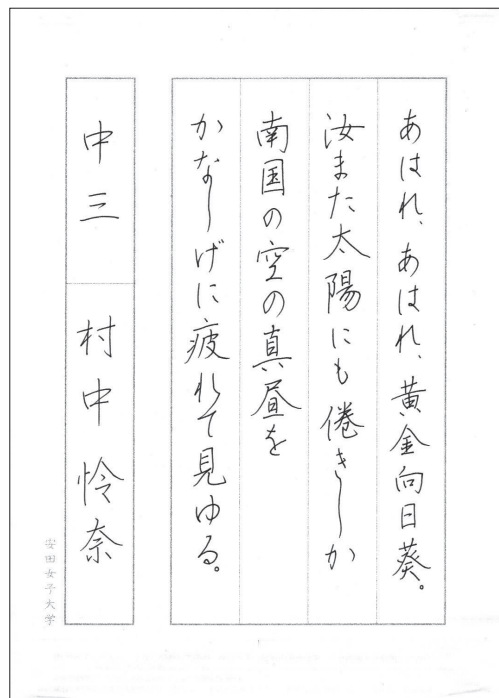 あはれ、あはれ、黄金向日葵。
汝また太陽にも倦きしか
南国の空の真昼を
かなしげに疲れて見ゆる。
中三 村中怜奈
安田女子大学